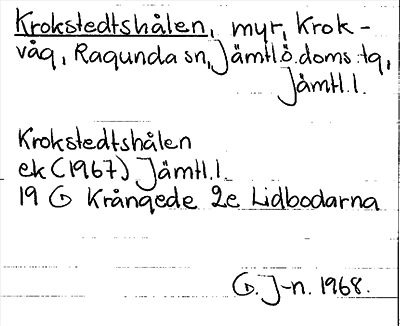 Krokstedtshålen, myr, Krok-
våg, Ragunda sn, Jämtl.ö.doms.tg,
Jämtl.l.
Krokstedtshålen
ek (1967) Jämtl.l.
19 G Krångede 2e Lidbodarna
G. J-n. 1968.